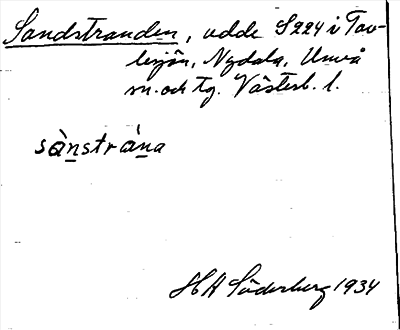 Sandstranden, udde S 224 i Tav-
lesjön, Nydala, Umeå
sn. och tg. Västerb. l.
sà̱nstrá̱na
HA Söderberg 1934